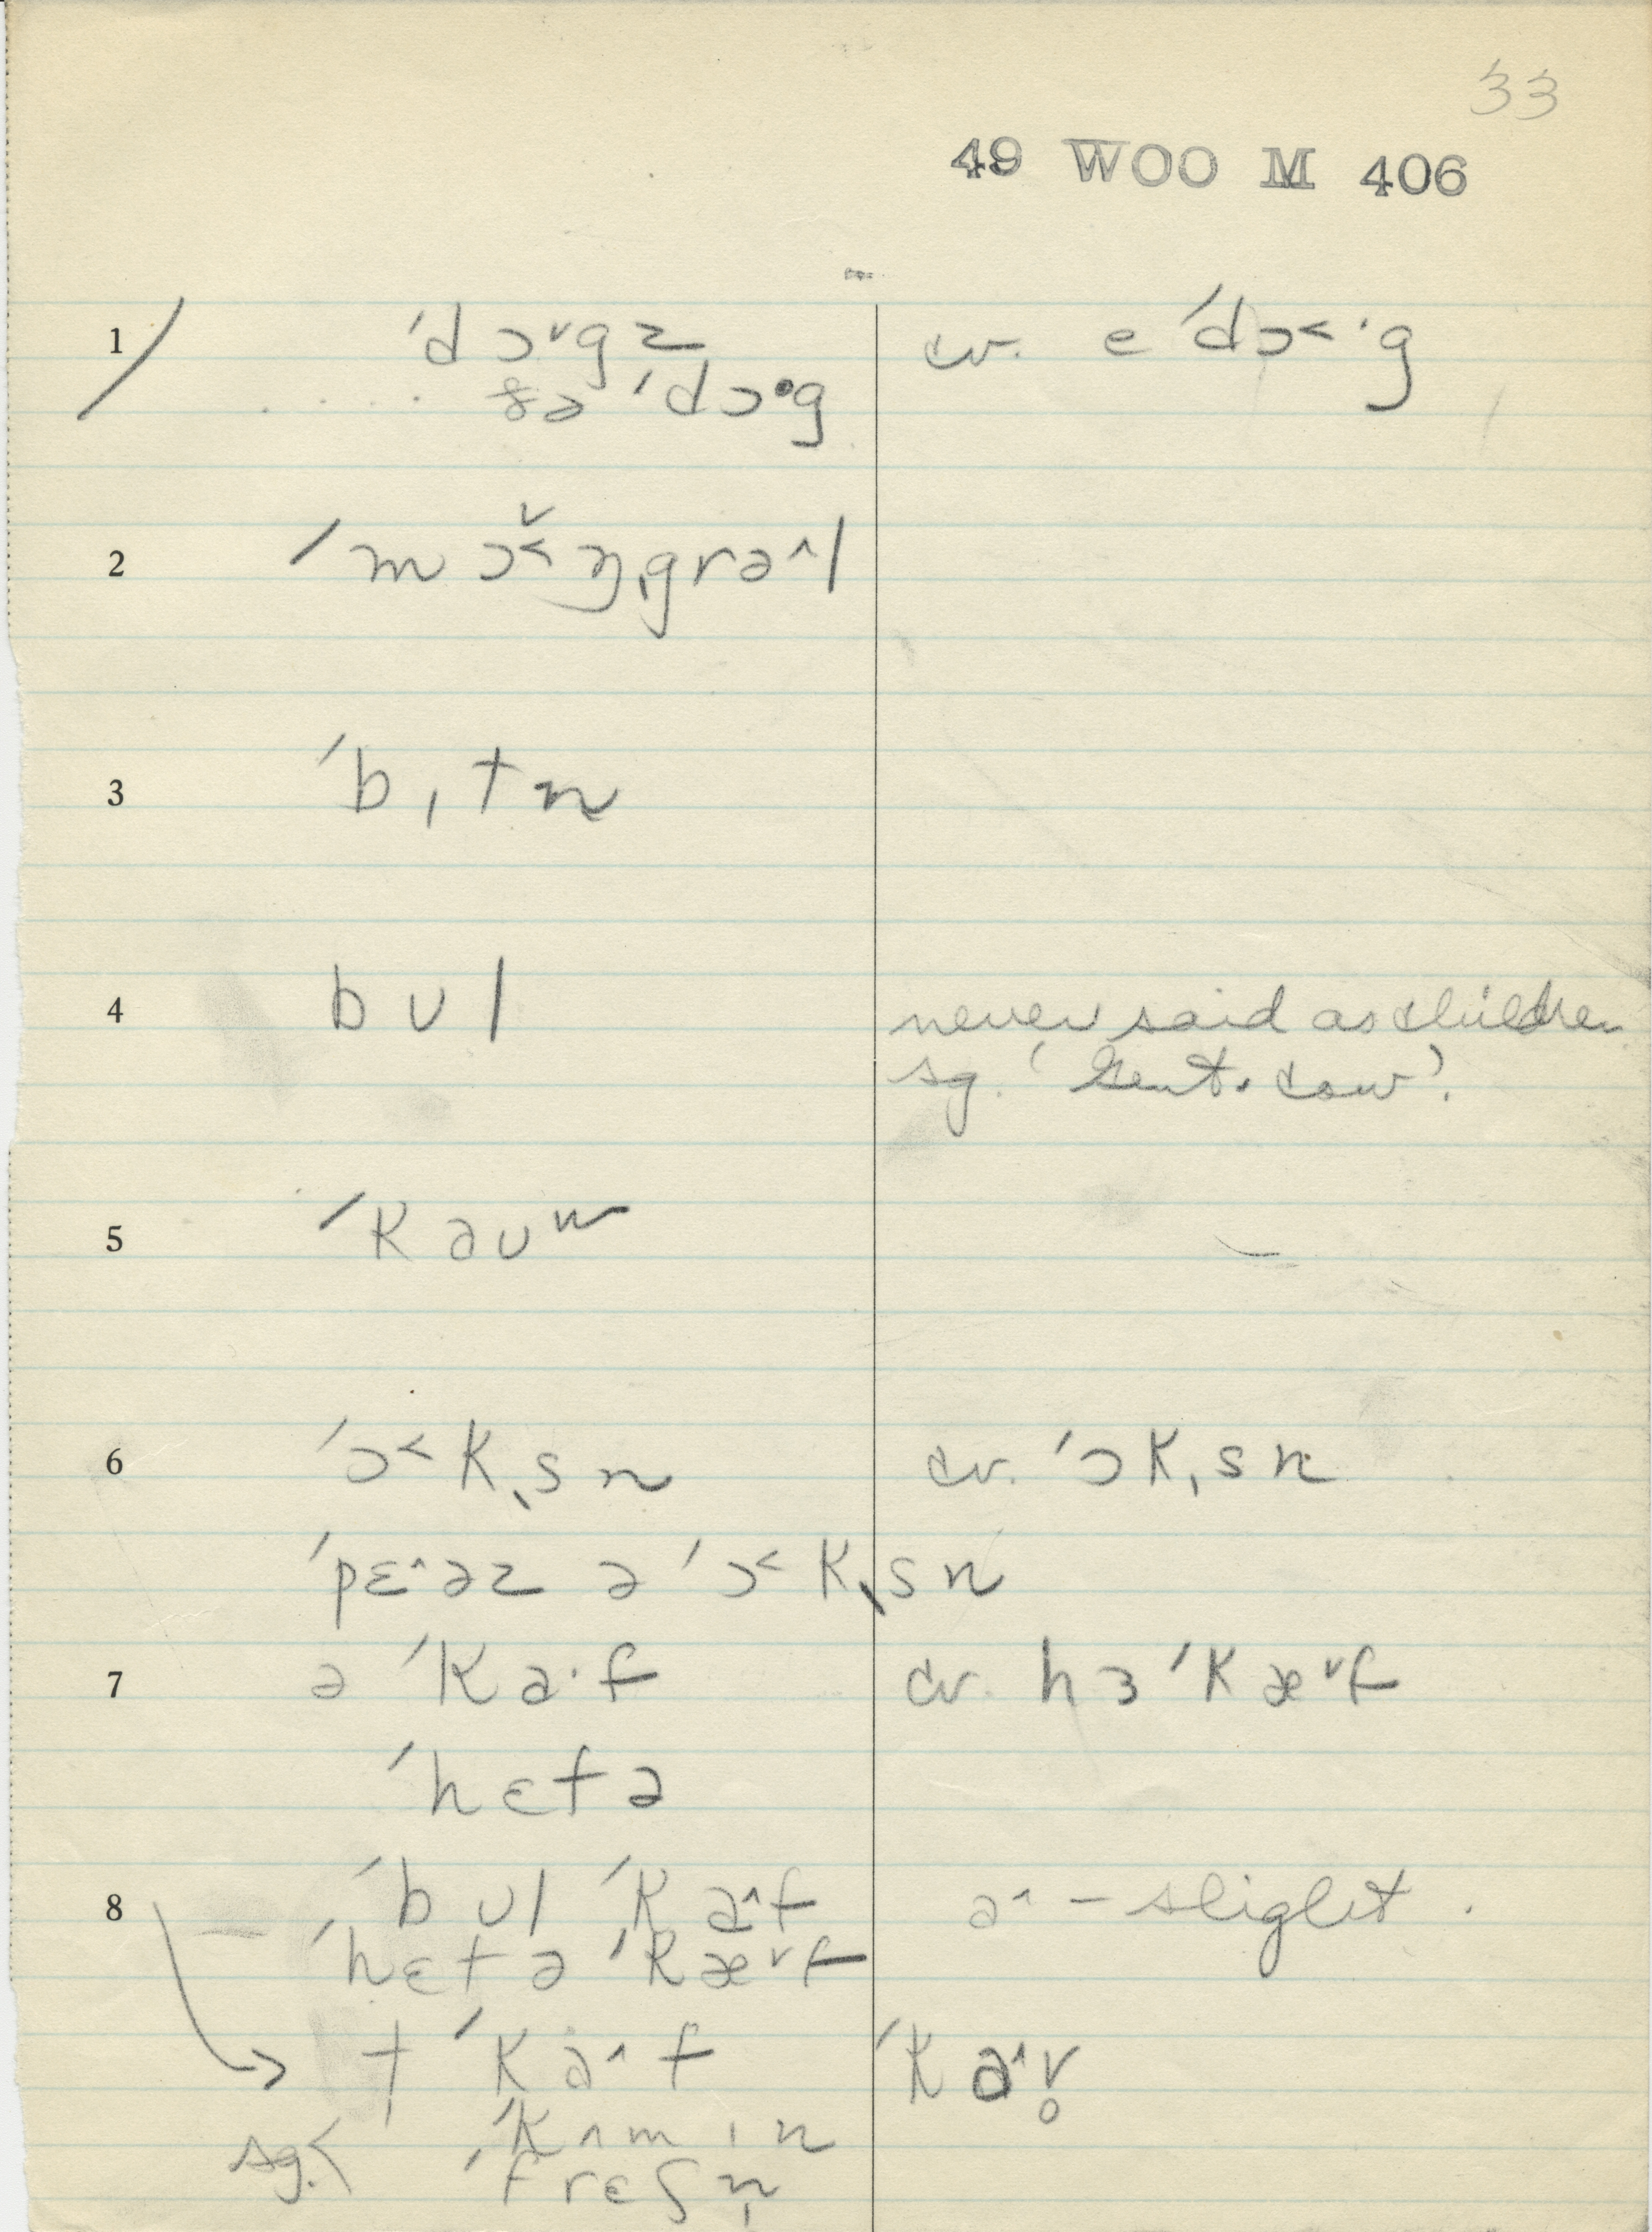 33
49 WOO M 406
1 ˈdɔˇgz cv. eˈdɔ˂·g
ðəˈdɔ·g
2 ˈmɔ̌˂ŋˌgrəˆl
3 ˈbɪtn
4 bʊl never said as children
sg. 'Gent. cow'.
5 ˈkaʊʷ
6 ˈɔ˂kˌsn cv. ˈɔkˌsn
ˈpɛˆəz əˈɔ˂kˌsn
7 əˈka·f cv. hɜˈkæˇf
ˈhɛfə
8 ˈbʊl ˈkaˆf aˆ – slight.
ˈhɛfə ˈkæˇf
† ˈkaˆf ˈkaˆv̥
sg. < ˈkʌmɪn
ˈfrɛʃn̩